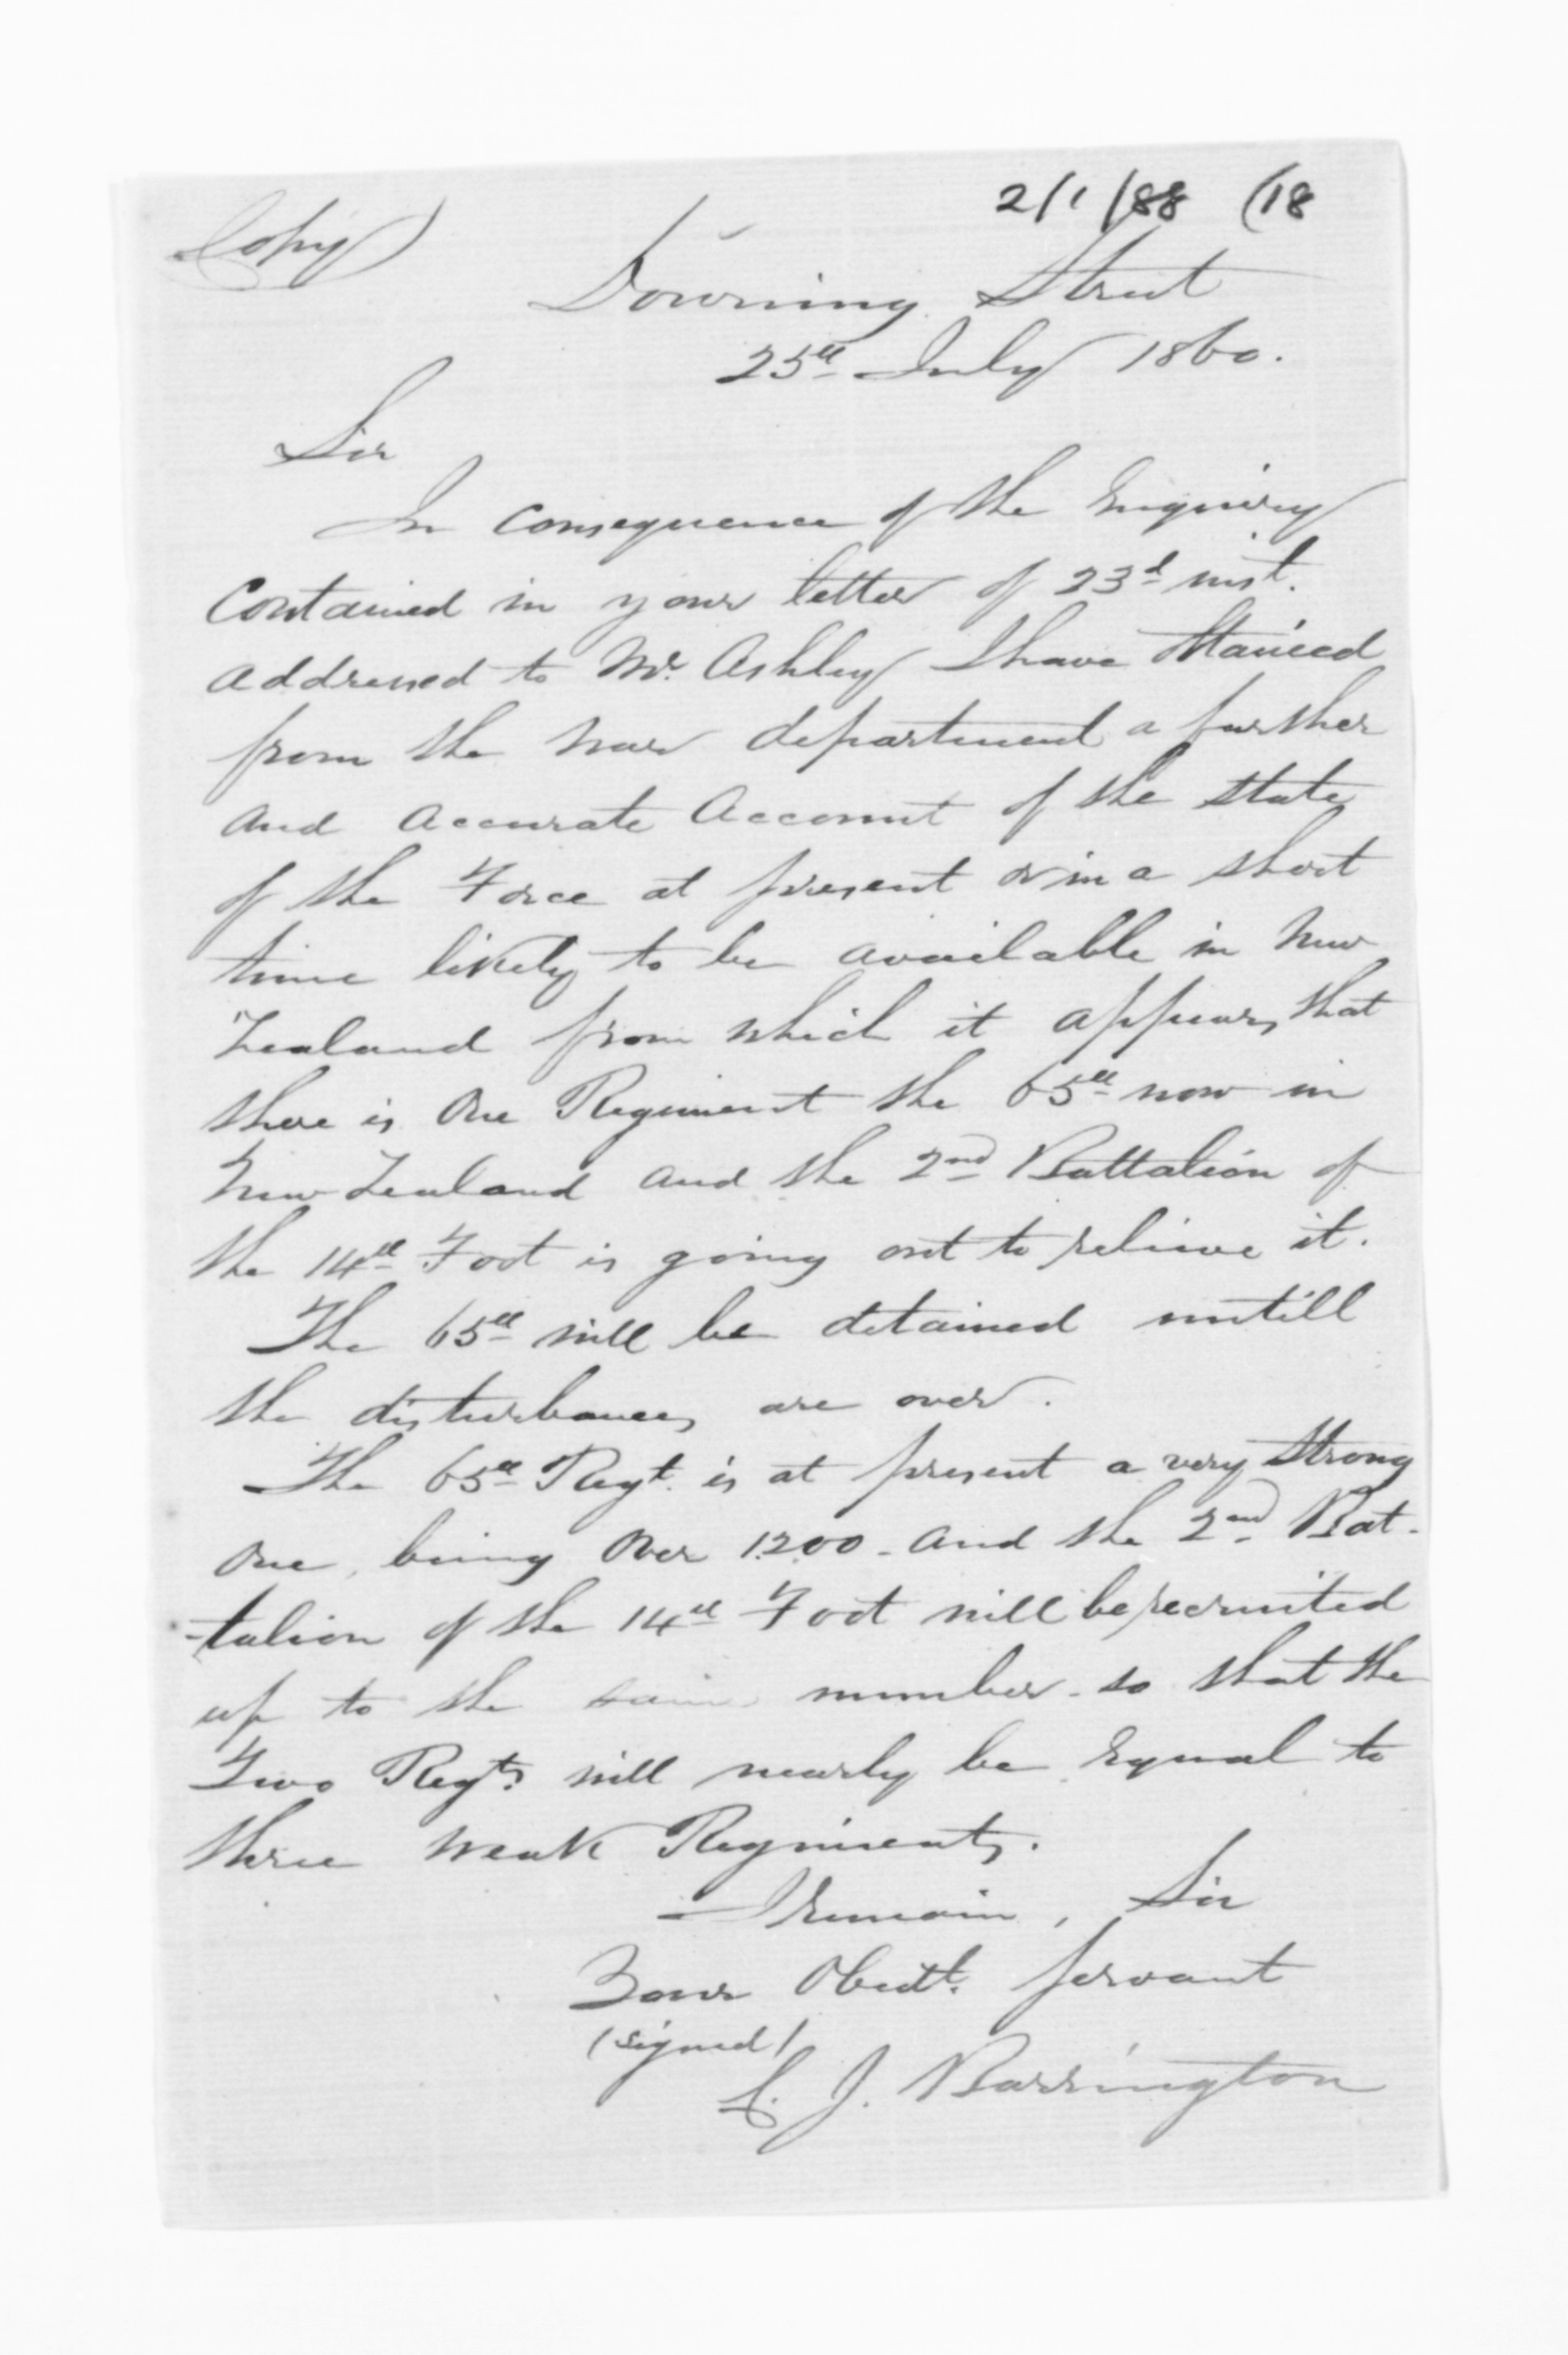 2/1/88 (18
Copy)
Downing Street
25th July 1860.
Sir
In consequence of the Enquiry
Contained in your letter of 23d inst.
addressed to Mr. Ashley I have Obtained
from the War department a further
and accurate Account of the state
of the Force at present or in a short
time likely to be available in New
Zealand from which it appears that
there is One Regiment the 65th now in
New Zealand and the 2nd Battalion of
the 14th Foot is going out to relieve it.
The 65th will be detained untill
the disturbances are over.
The 65th Regt. is at present a very Strong
One, being Over 1200 - and the 2nd Bat-
-talion of the 14th Foot will be recruited
up to the same number - so that the
Two Regts. will nearly be Equal to
three weak Regiments.
I remain, Sir
Your Obedt. servant
(signed)
C. J. Barrington